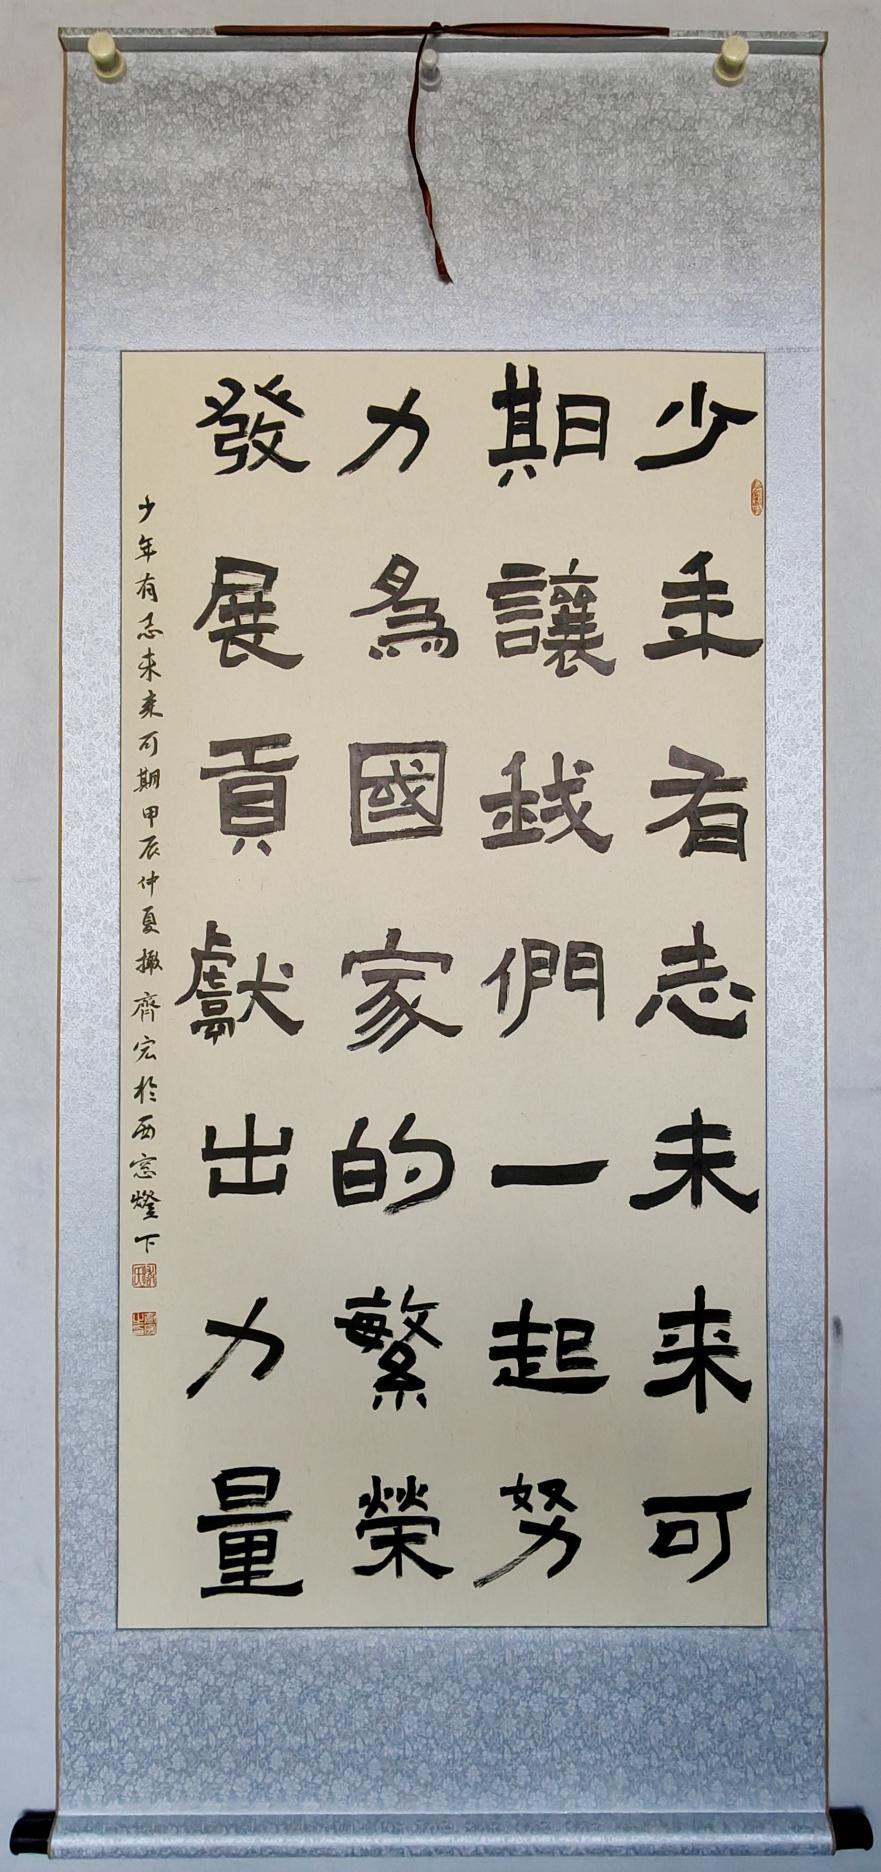 少年有志未来可
期讓我們一起努
力為國家的繁榮
發展貢獻出力量
少年有志未来可期甲辰仲夏撖齊宏於西窓燈下